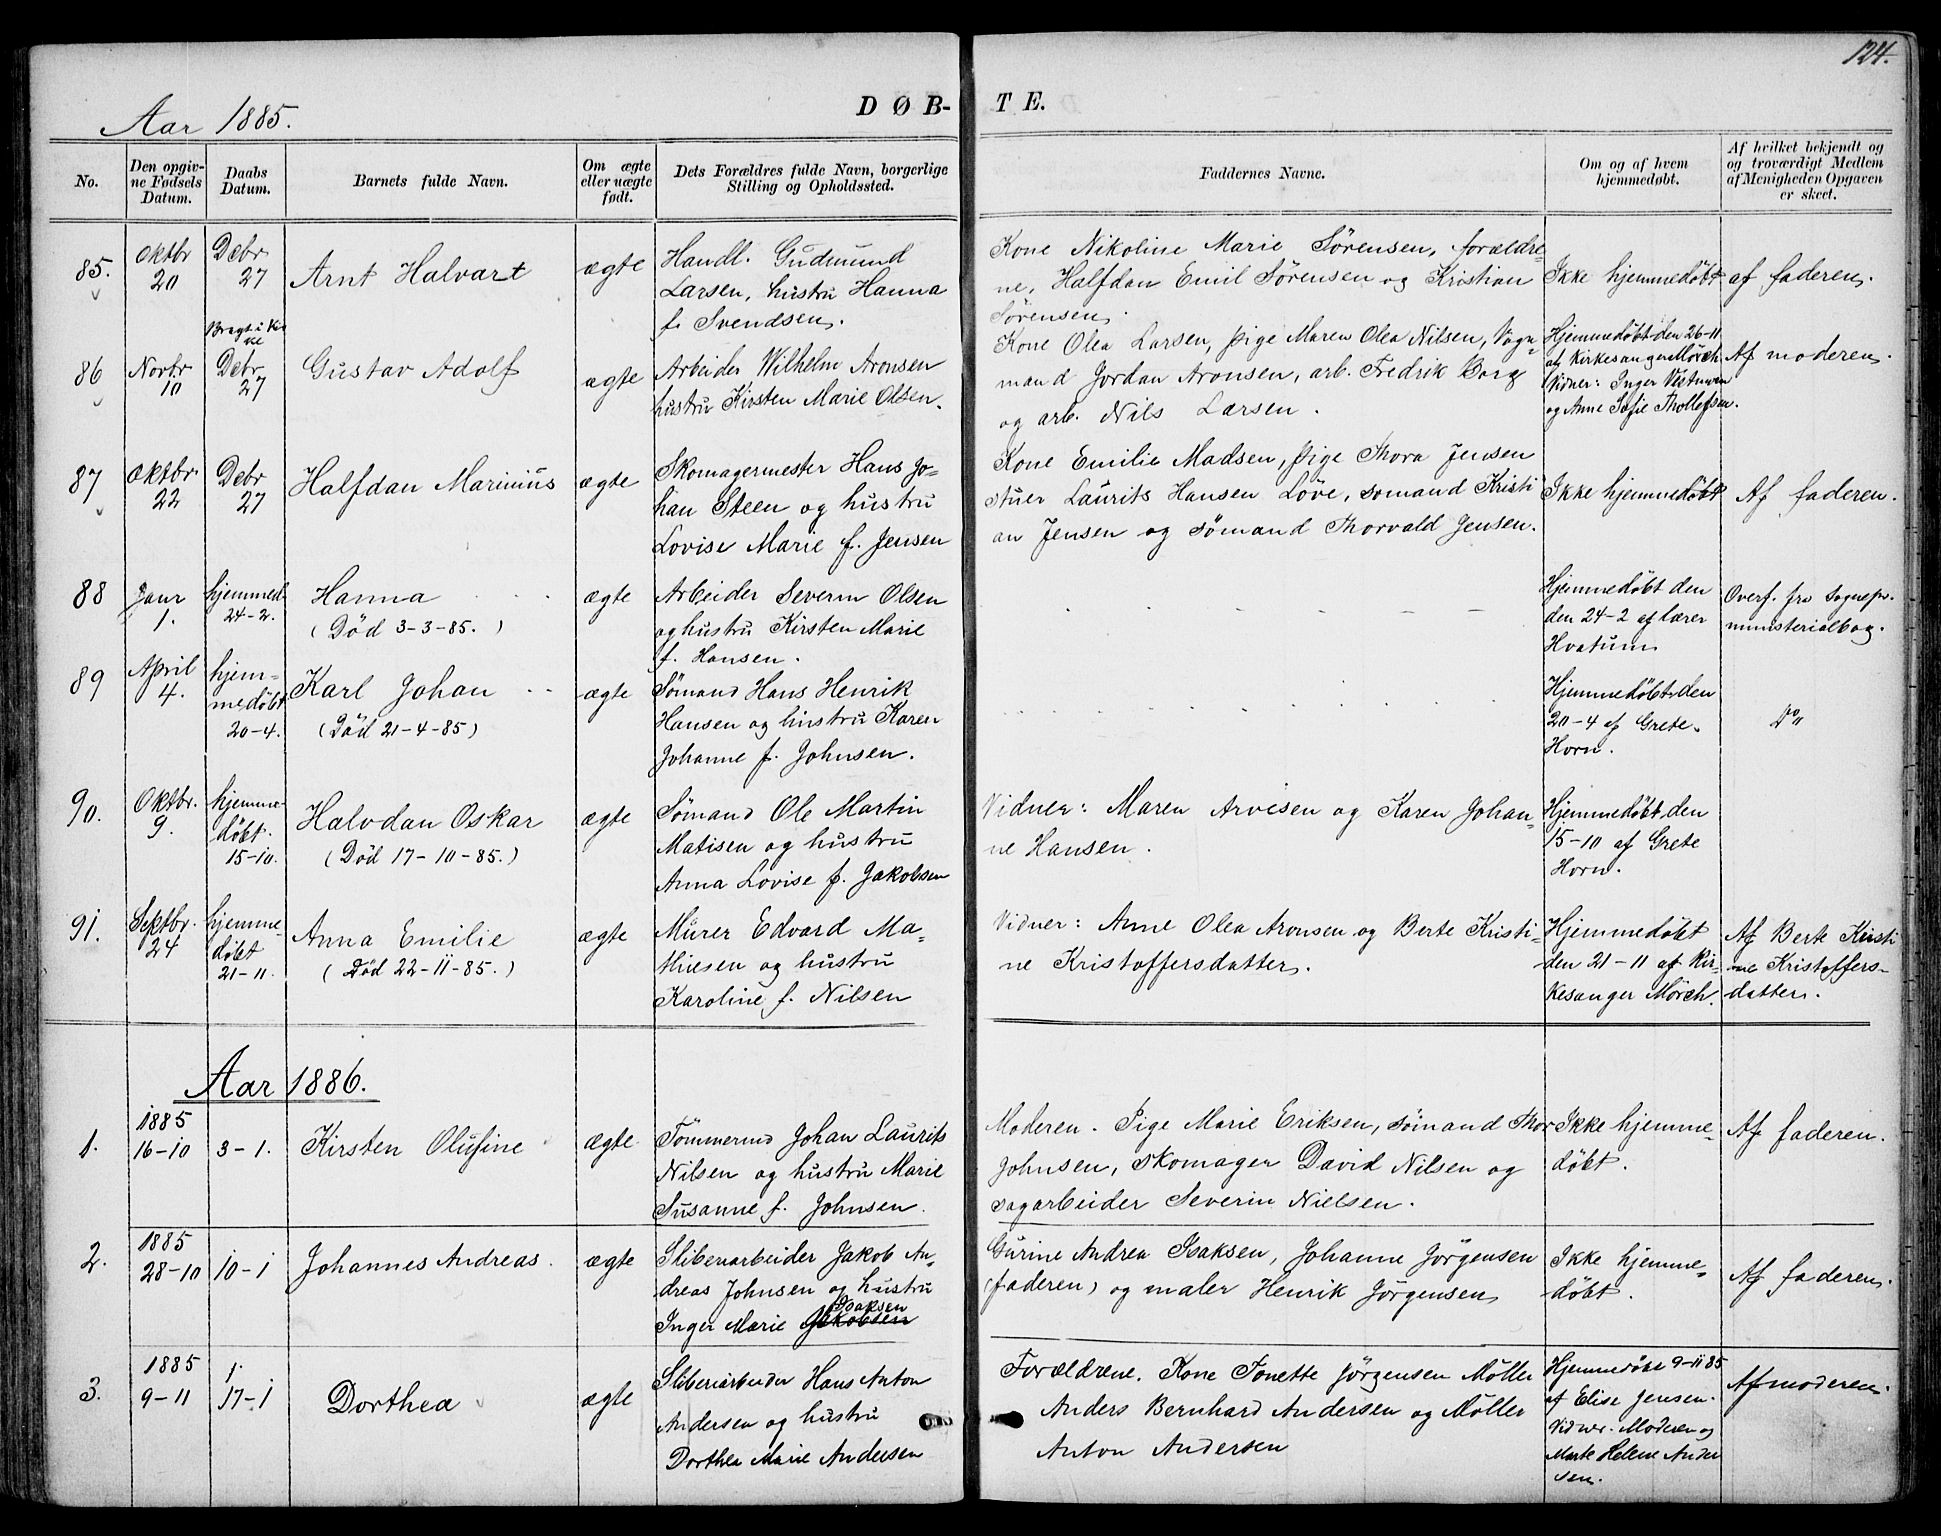 124.
Aar 1885.
DØB-
TE.
No.
Den opgiv-
ne Fødsels
Datum.
Daabs
Datum.
Barnets fulde Navn.
Om ægte
eller uægte
født.
Dets Forældres fulde Navn, borgerlige
Stilling og Opholdssted.
Faddernes Navne.
Om og af hvem
hjemmedøbt.
Af hvilket bekjendt og
og troværdigt Medlem
af Menigheden Opgaven
er skeet.
85.
Oktbr
20
Debr
27
Arnt Halvart
ægte
Handl. Gudmund
Larsen, hustru Hanna
f. Svendsen.
Kone Nikoline Marie Sörensen, forældre-
ne, Halfdan Emil Sörensen og Kristian
Sörensen.
Ikke hjemmedöbt
af faderen.
86
Novbr
10
Bragt i Kir
ke
Debr
27
Gustav Adolf
ægte
Arbeider Wilhelm Aronsen
hustru Kirsten Marie Olsen.
Kone Olea Larsen, pige Maren Olea Nilsen, Vogn-
mand Jordan Aronsen, arb. Fredrik Borg
og arb. Nils Larsen.
Hjemmedöbt den 26-11
af Kirkesanger Mörch
Vidner: Inger
og Anne Sofie Thollefsen.
Af moderen.
87
Oktbr.
22
Debr
27
Halfdan Marinius
ægte
Skomagermester Hans Jo-
han Steen og hustru
Lovise Marie f. Jensen
Kone Emilie Madsen, pige Thora Jensen
stuer Laurits Hansen Löve, sömand Kristi
an Jensen og sömand Thorvald Jensen.
Ikke hjemmedöbt
Af faderen.
88
Janr
1.
hjemmed.
24-2.
Hanna
(Död 3-3-85.)
ægte
Arbeider Severin Olsen
og hustru Kirsten Marie
f. Hansen.
Hjemmedöbt den
den 24-2 af lærer
Hvatum
Overf. fra Sognepr.
ministerialbog.
89
April
4.
hjem-
medöbt
20-4.
Karl Johan
(Död 21-4-85)
ægte
Sömand Hans Henrik
Hansen og hustru Karen
Johanne f. Johnsen.
Hjemmedöbt den
20-4 af Grete
Horn.
Do
90.
Oktbr.
9.
hjemme-
döbt.
15-10.
Halvdan Oskar
(Död 17-10-85.)
ægte
Sömand Ole Martin
Matisen og hustru
Anna Lovise f. Jakobsen
Vidner: Maren Arvesen og Karen Johan-
ne Hansen.
Hjemmedöbt den
15-10 af Grete
Horn.
91.
Septbr.
24
hjemme-
döbt
21-11.
Anna Emilie
(Död 22-11-85.)
ægte
Mürer Edvard Ma-
thiesen og hustru
Karoline f. Nilsen
Vidner: Anne Olea Aronsen og Berte Kristi-
ne Kristoffersdatter.
Hjemmedöbt
den 21-11 af Kir-
kesanger Mörch.
Af Berte Kristi
ne Kristoffers-
datter.
Aar 1886.
1.
1885
16-10
3-1.
Kirsten Olufine
ægte
Tömmermd Johan Laurits
Nilsen og hustru Marie
Susanne f. Johnsen.
Moderen. Pige Marie Eriksen, sömand Thor
Johnsen, skomager David Nilsen og
sagarbeider Severin Nielsen.
Ikke hjemme-
döbt.
Af faderen.
2.
1885
28-10
10-1
Johannes Andreas.
ægte
Sliberiarbeider Jakob An-
dreas Johnsen og hustru
Isaksen
Inger Marie Jakobsen
Gurine Andrea Isaksen, Johanne Jörgensen
(faderen) og maler Henrik Jörgensen
Ikke hjemme-
döbt.
Af faderen.
3.
1885
9-11
17-1
Dorthea
ægte
Sliberiarbeider Hans Anton
Andersen og hustru
Dorthea Marie Andersen
Forældrene. Kone Tonette Jörgensen Möller
Anders Bernhard Andersen og Möller
Anton Andersen
Hjemmedöbt 9-11 85
af Elise Jensen.
Vidner. Moderen og
Marte Helene Ander
sen.
Af moderen.